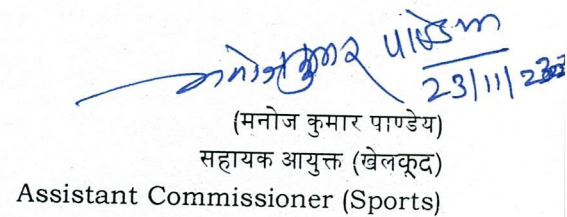 मनोज कुमार पाण्डेय
23/11/2023
(मनोज कुमार पाण्डेय)
सहायक आयुक्त (खेलकूद)
Assistant Commissioner (Sports)